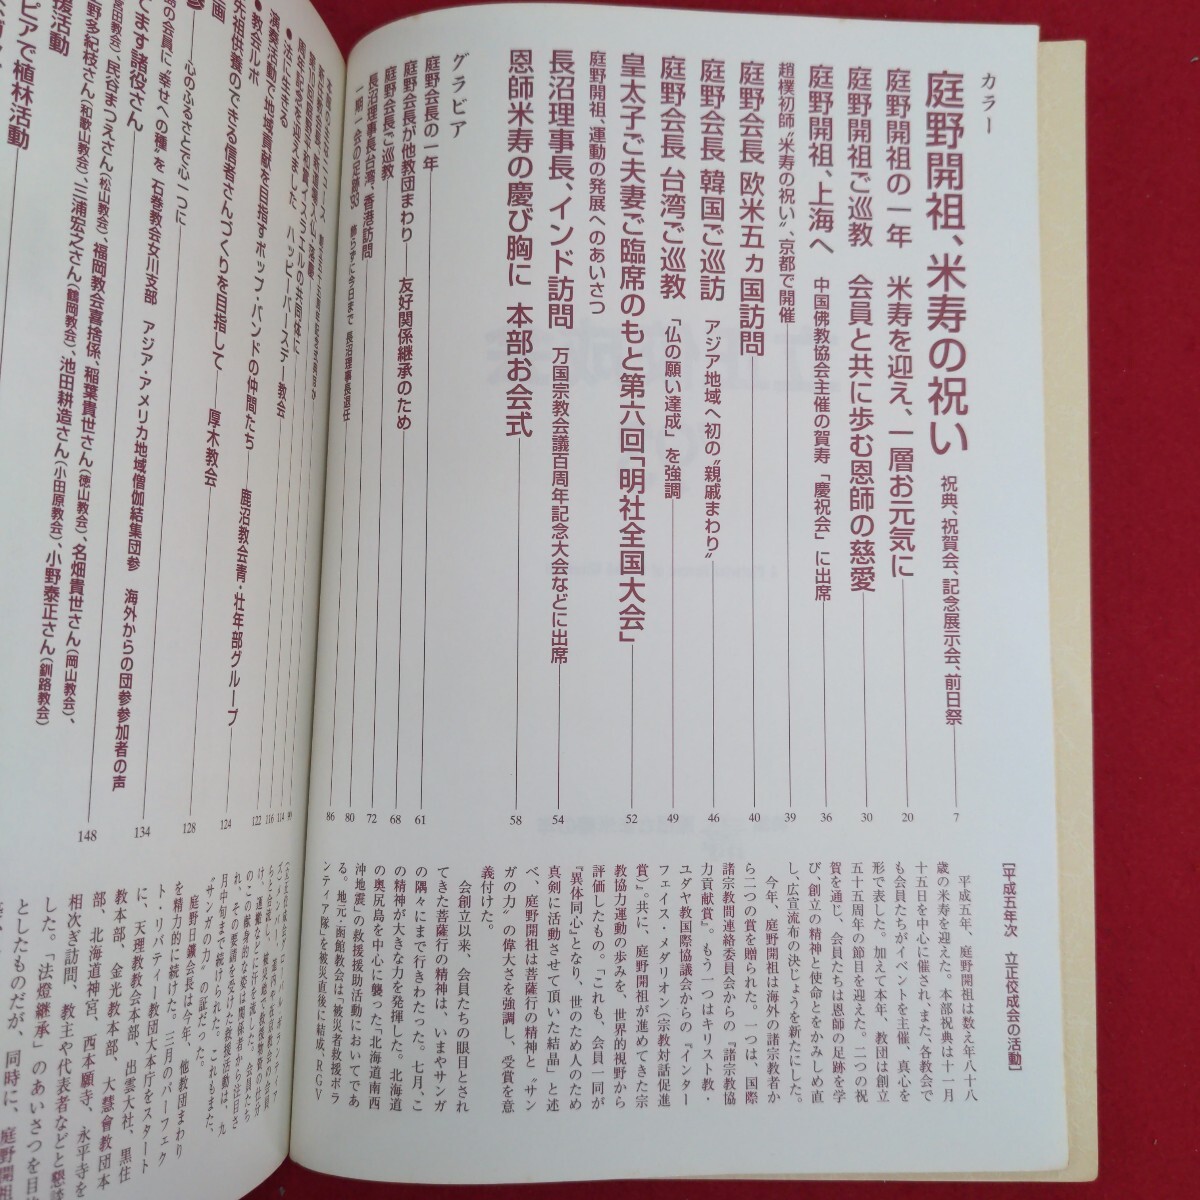 カラー
庭野開祖、米寿の祝い 祝典、祝賀会、記念展示会、前日祭 7
庭野開祖の一年 米寿を迎え、一層お元気に 20
庭野開祖ご巡教 会員と共に歩む恩師の慈愛 30
庭野開祖、上海へ 中国佛教協会主催の賀寿「慶祝会」に出席 36
趙樸初師〝米寿の祝い〟、京都で開催 39
庭野会長 欧米五カ国訪問 40
庭野会長 韓国ご巡訪 アジア地域へ初の〝親戚まわり〟 46
庭野会長 台湾ご巡教 「仏の願い達成」を強調 49
皇太子ご夫妻ご臨席のもと第六回「明社全国大会」 52
庭野開祖、運動の発展へのあいさつ
長沼理事長、インド訪問 万国宗教会議百周年記念大会などに出席 54
恩師米寿の慶び胸に 本部お会式 58
グラビア
庭野会長の一年 61
庭野会長が他教団まわり 友好関係継承のため 68
庭野会長ご巡教 72
長沼理事長台湾、香港訪問 80
一期一会の足跡'93 飾らずに今日まで 長沼理事長退任 86
[平成五年次 立正佼成会の活動]
平成五年、庭野開祖は数え年八十八
歳の米寿を迎えた。本部祝典は十一月
十五日を中心に催され、また、各教会で
も会員たちがイベントを主催、真心を
形で表した。加えて本年、教団は創立
五十五周年の節目を迎えた。二つの祝
賀を通じ、会員たちは恩師の足跡を学
び、創立の精神と使命とをかみしめ直
し、広宣流布の決じょうを新たにした。
今年、庭野開祖は海外の諸宗教者か
ら二つの賞を贈られた。一つは、国際
諸宗教間連絡委員会からの『諸宗教協
力貢献賞』。もう一つはキリスト教・
ユダヤ教国際協議会からの『インター
フェイス・メダリオン(宗教対話促進
賞)』。共に、庭野開祖が進めてきた宗
教協力運動の歩みを、世界的視野から
評価したもの。「これも、会員一同が
『異体同心』となり、世のため人のため
真剣に活動させて頂いた結晶」と述
べ、庭野開祖は菩薩行の精神と〝サン
ガの力〟の偉大さを強調し、受賞を意
義付けた。
会創立以来、会員たちの眼目とされ
てきた菩薩行の精神は、いまやサンガ
の隅々にまで行きわたった。七月、こ
の精神が大きな力を発揮した。北海道
の奥尻島を中心に襲った「北海道南西
沖地震」の救援援助活動においてであ
る。地元・函館教会は「被災者救援ボラ
ンティア隊」を被災直後に結成、RGV
99
114
法に生きる 116
周年記念を迎えました ハッピーバースデー教会
●教会ルポ
演奏活動で地域貢献を目指すポップ・バンドの仲間たち 鹿沼教会青・壮年部グループ 122
先祖供養のできる信者さんづくりを目指して 厚木教会 124
画
心のふるさとで心一つに 128
の会員に〝幸せへの種〟を 石巻教会女川支部 アジア・アメリカ地域僧伽結集団参 海外からの団参参加者の声 134
てます諸役さん 148
民谷まつえさん(松山教会)、福岡教会喜捨係、稲葉貴世さん(徳山教会)、名畑貴世さん(岡山教会)、
野多紀枝さん(和歌山教会)、三浦宏之さん(鶴岡教会)、池田耕造さん(小田原教会)、小野泰正さん(釧路教会)
援活動
ピアで植林活動
月中旬まで続けられた。これもまた、
〝サンガの力〟の証だった。
庭野日鑛会長は今年、他教団まわり
を精力的に続けた。三月のパーフェク
ト・リバティー教団大本庁をスタート
に、天理教教会本部、出雲大社、黒住
教本部、金光教本部、大慧會教団本
部、北海道神宮、西本願寺、永平寺を
相次ぎ訪問、教主や代表者などと懇談
した。「法燈継承」のあいさつを目的
としたものだが、同時に、庭野開祖